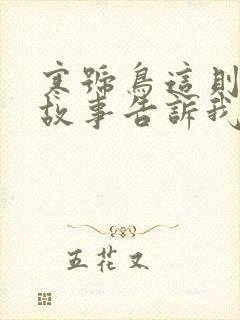 寒號鳥這則
故事告訴我
五花又